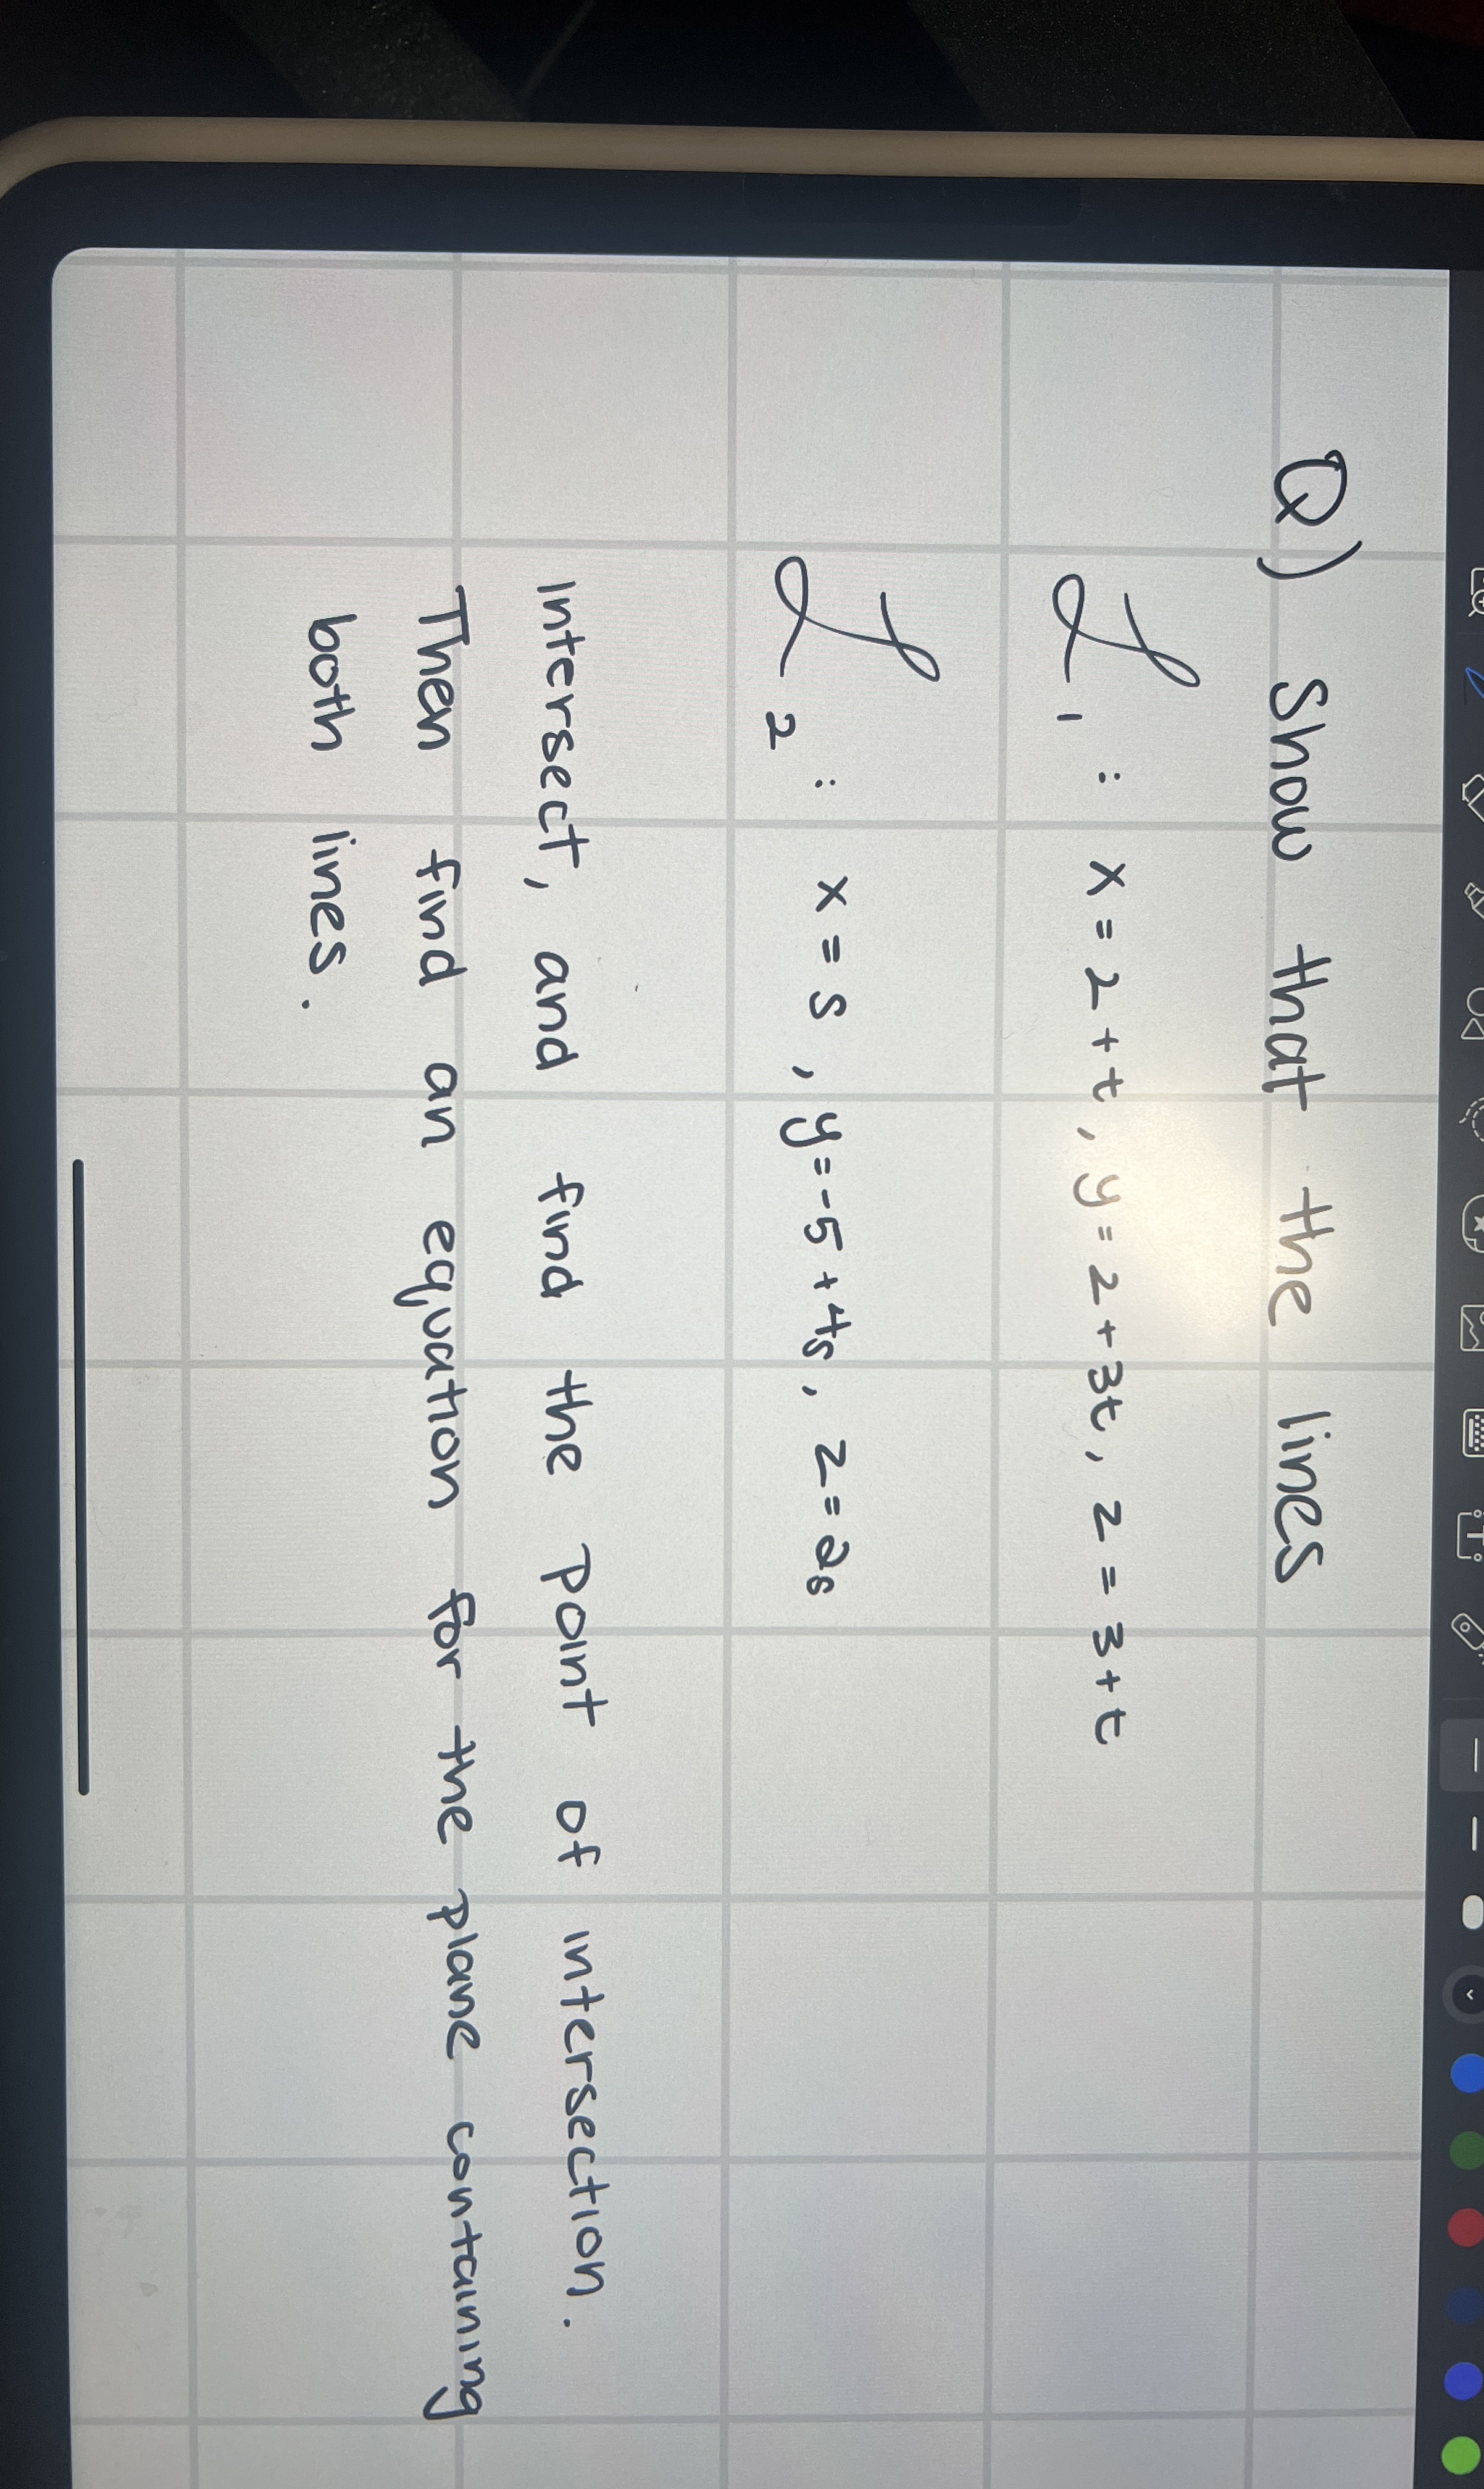 Q) Show that the lines
L1 : x = 2 + t, y = 2 + 3t, z = 3 + t
L2 : x = s, y = -5 + 4s, z = 2s
Intersect, and find the point of intersection.
Then find an equation for the plane containing
both lines.